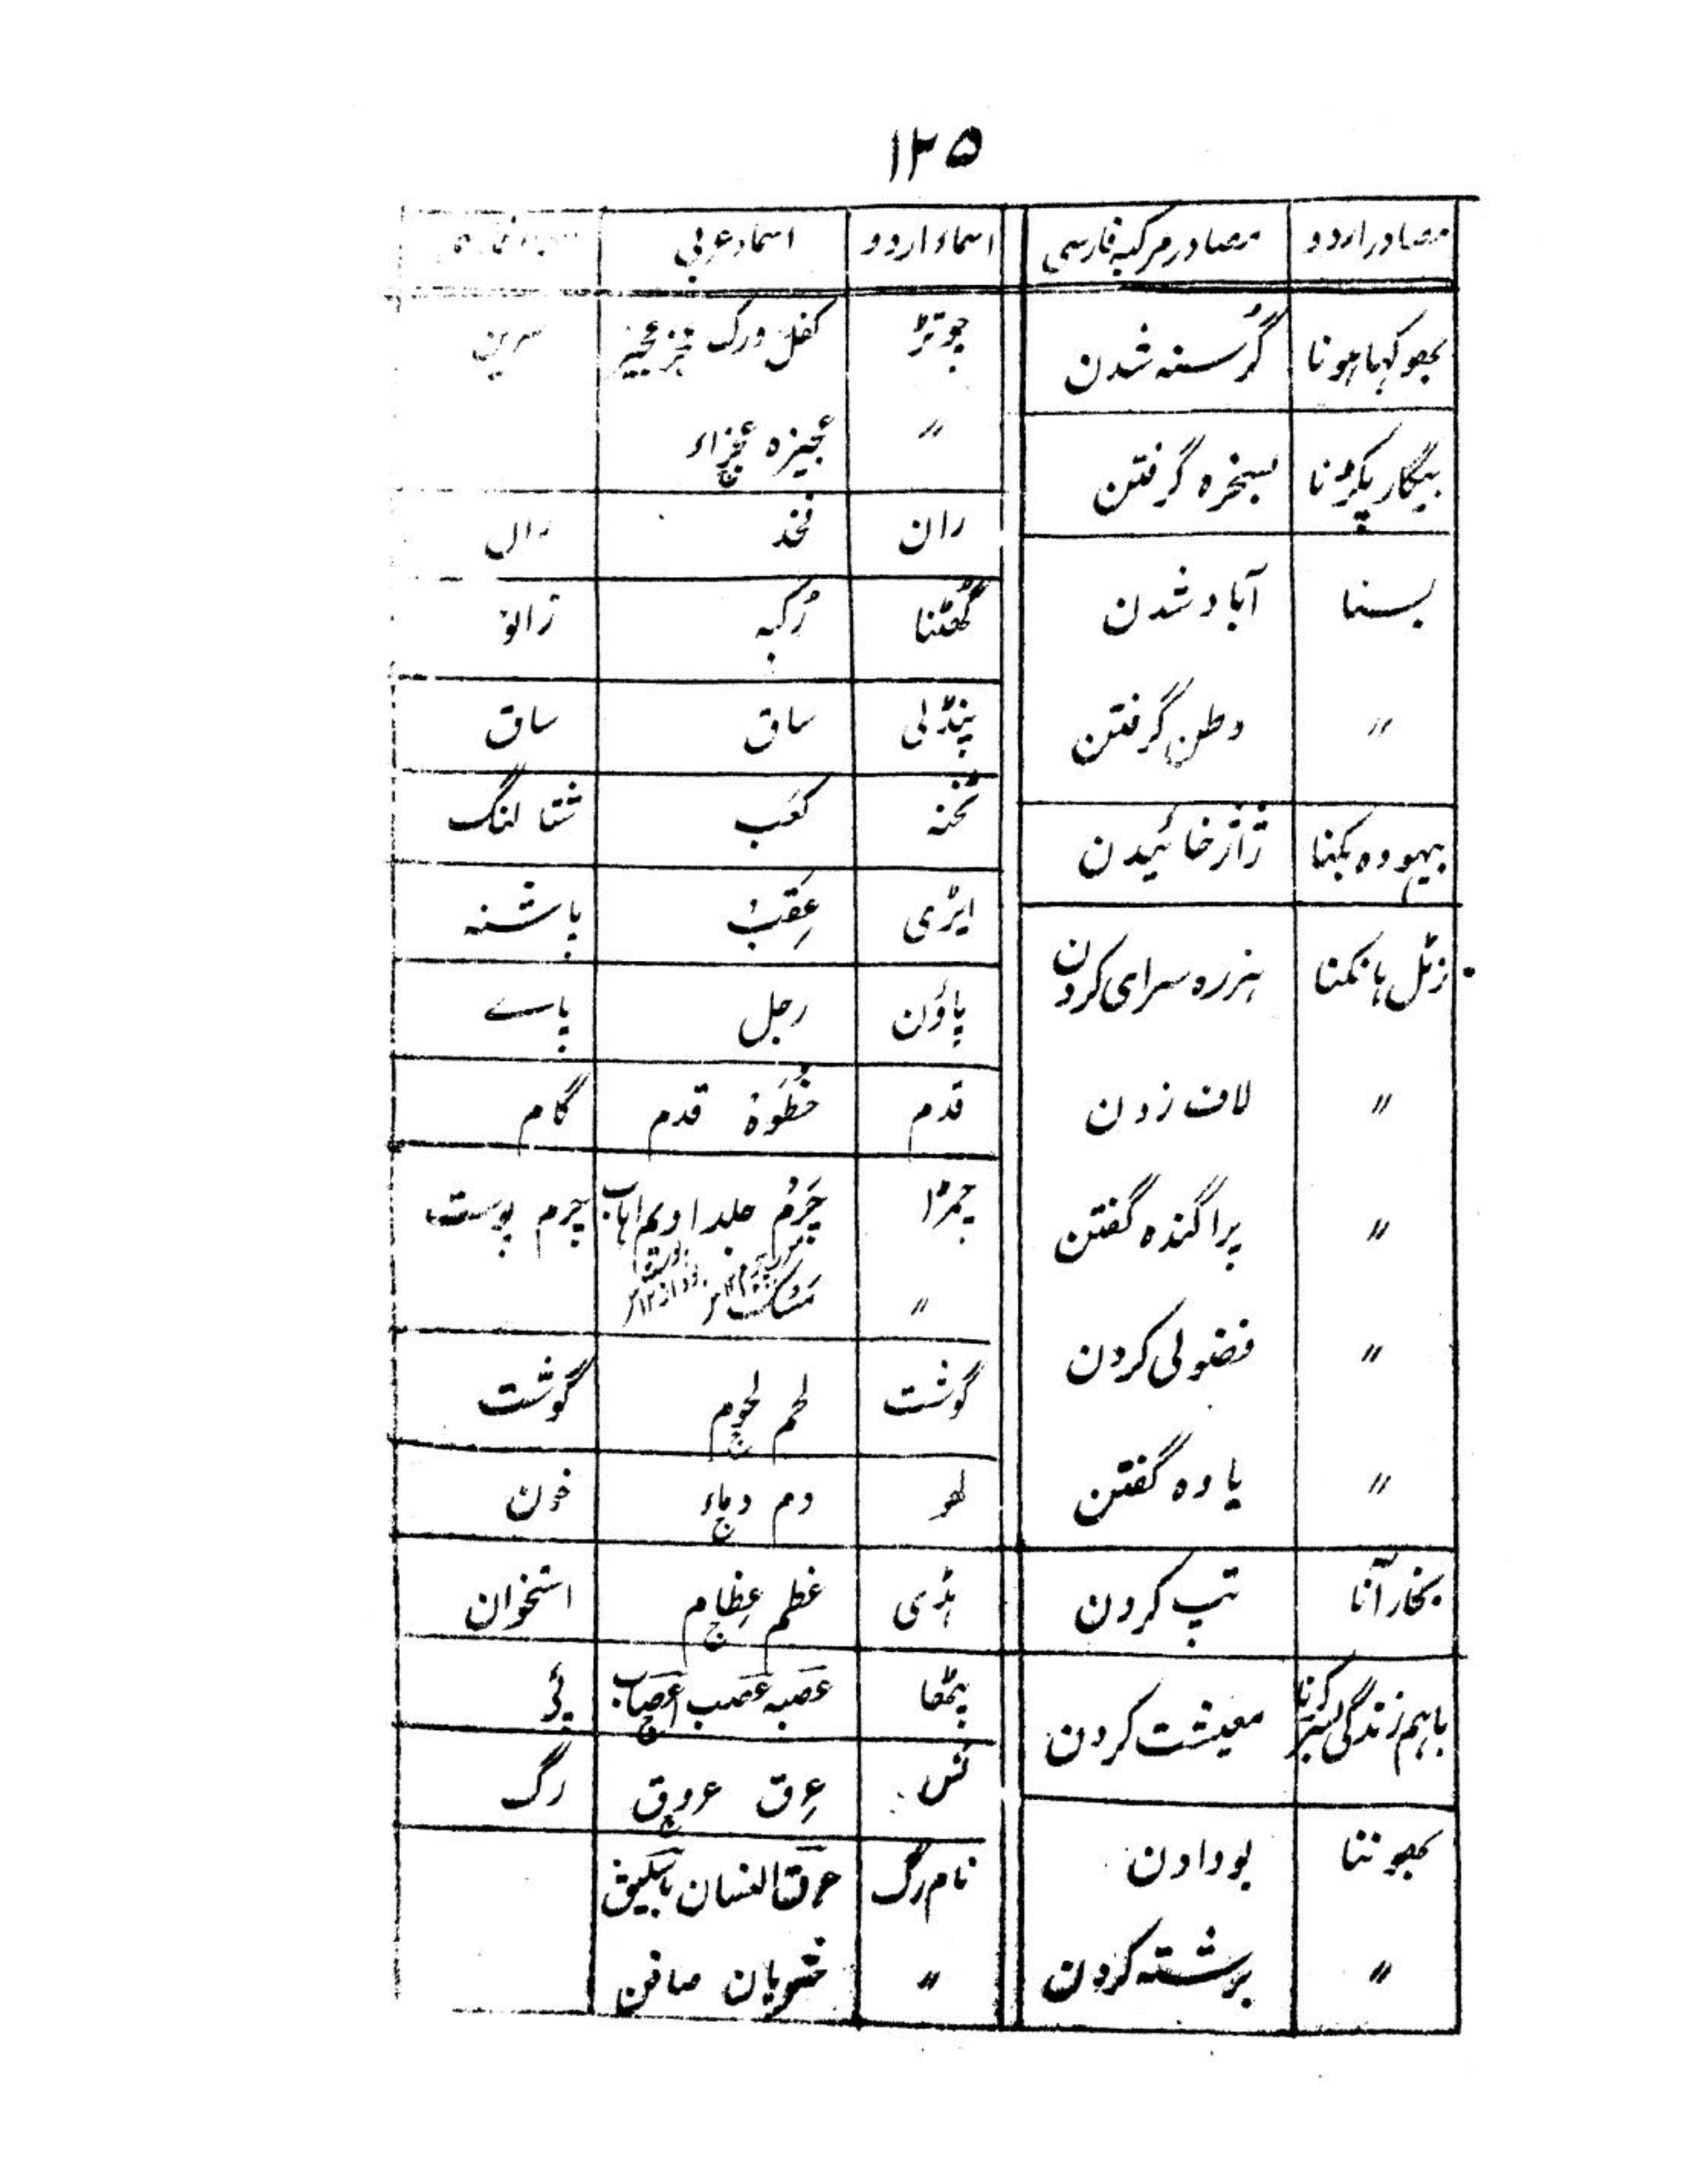 ۱۲۵
مصادر اردو مصادر مرکبہ فارسی
بھوکہا ہونا گُرُسنہ شدن
بیگار پکڑنا بسخرہ گرفتن
بسنا آباد شدن
〃 وطن گرفتن
بیہودہ بکنا ژاژ خائیدن
زٹل ہانکنا ہزرہ سرای کردن
〃 لاف زدن
〃 پراگندہ گفتن
〃 فضولی کردن
〃 یاوہ گفتن
بخار آنا تپ کردن
باہم زندگی بسر کرنا معیشت کردن
بھوننا بودادن
〃 برشتہ کردن
اسماء اردو اسماء عربی
چوتڑ کفل ورک عجز عجیز سرین
〃 عجیزہ عجزاء
ران فخذ ران
گھٹنا رُکبہ زانو
پنڈلی ساق ساق
ٹخنہ کعَب شتالنگ
ایڑی عَقِبْ پاشنہ
پاؤن رجل پاے
قدم خُطْوَۃ قدم گام
چمڑا چَرمُ جلد ادیم اہاب چرم پوست
〃 مَسْک
گوشت لحم لحوم گوشت
لہو دم دماء خون
ہڈی عظم عِظام استخوان
پٹھا عَصَبہ عَصَب اعصاب پَی
نَس عِرق عروق رگ
نام رگ عرق النسا
〃 صافن